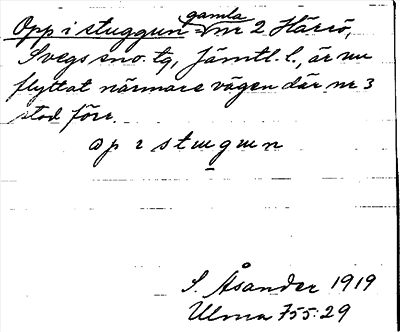 Opp i stuggun = gamla nr 2 Härrö,
Svegs sn o. tg, Jämtl. l., är nu
flyttat närmare vägen där nr 3
stod förr.
op i stugun
S. Åsander 1919
Ulma 755:29